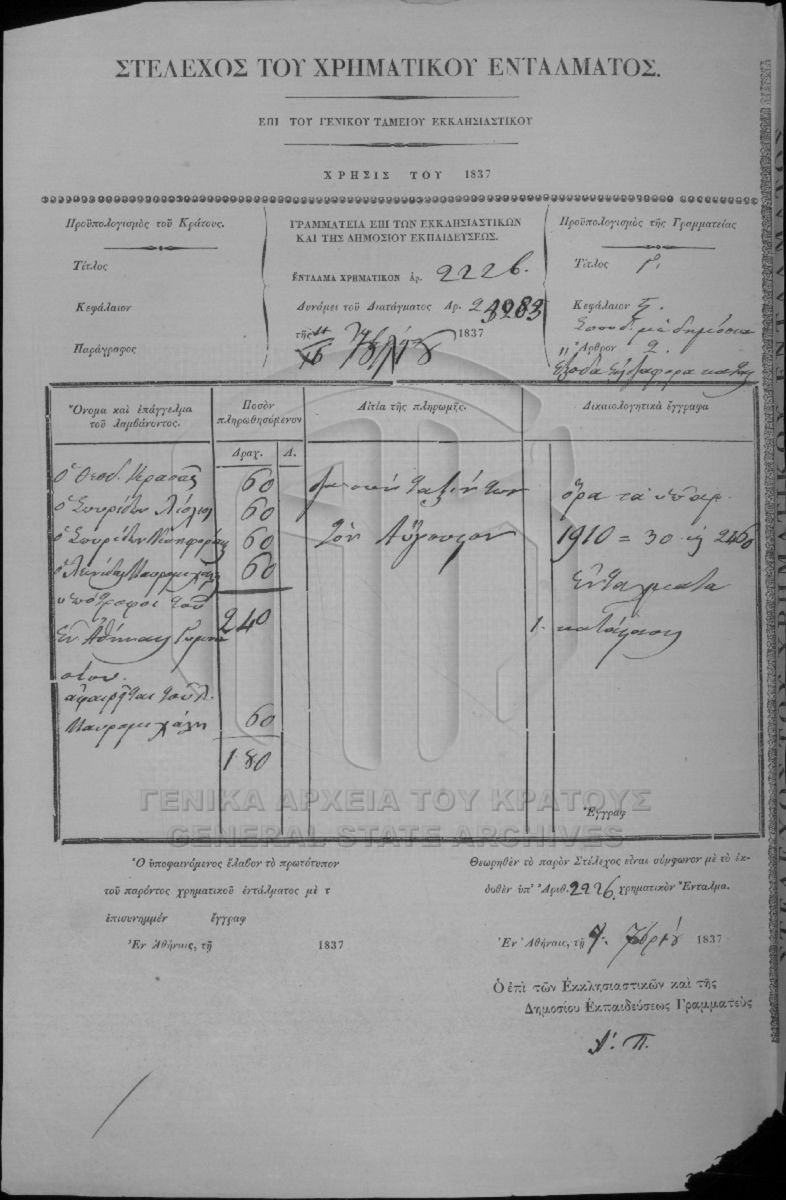 ΣΤΕΛΕΧΟΣ ΤΟΥ ΧΡΗΜΑΤΙΚΟΥ ΕΝΤΑΛΜΑΤΟΣ.
ΕΠΙ ΤΟΥ ΓΕΝΙΚΟΥ ΤΑΜΕΙΟΥ ΕΚΚΛΗΣΙΑΣΤΙΚΟΥ
ΧΡΗΣΙΣ ΤΟΥ 1837
Προϋπολογισμὸς τοῦ Κράτους.
Τίτλος
Κεφάλαιον
Παράγραφος
ΓΡΑΜΜΑΤΕΙΑ ΕΠΙ ΤΩΝ ΕΚΚΛΗΣΙΑΣΤΙΚΩΝ
ΚΑΙ ΤΗΣ ΔΗΜΟΣΙΟΥ ΕΚΠΑΙΔΕΥΣΕΩΣ.
ΕΝΤΑΛΜΑ ΧΡΗΜΑΤΙΚΟΝ ἀρ. 2226.
Δυνάμει τοῦ Διατάγματος Ἀρ.
τῆς 1837
Προϋπολογισμὸς τῆς Γραμματείας
Τίτλος Γ.
Κεφάλαιον
Σπουδ. μὲ δημόσια
„ Ἄρθρον 2.
ἔξοδα
Ὄνομα καὶ ἐπάγγελμα
τοῦ λαμβάνοντος.
Ποσὸν
πληρωθησόμενον
Αἰτία τῆς πληρωμῆς.
Δικαιολογητικὰ ἔγγραφα
Δραχ. Λ.
ὁ Θεοδ. 60
ὁ Σπυρίδων 60
ὁ Σπυρίδων 60
ὁ Λεωνίδας Μαυρομιχάλης 60
ὑπότροφοι τοῦ
240
ἐν Ἀθήναις Γυμνα
σίου.
ἀφαιρεῖται τοῦ Λ.
Μαυρομιχάλη 60
180
τὸν Αὔγουστον
ὅρα τὰ ὑπ' ἀρ.
1910 = 30
ἐντάλματα
1. κατάστασις
Ἔγγραφ
ΓΕΝΙΚΑ ΑΡΧΕΙΑ ΤΟΥ ΚΡΑΤΟΥΣ
GENERAL STATE ARCHIVES
Ὁ ὑποφαινόμενος ἔλαβον τὸ πρωτότυπον
τοῦ παρόντος χρηματικοῦ ἐντάλματος μὲ τ
ἐπισυνημμέν ἔγγραφ
Ἐν Ἀθήναις, τῇ 1837
Θεωρηθὲν τὸ παρὸν Στέλεχος εἶναι σύμφωνον μὲ τὸ ἐκ-
δοθὲν ὑπ' Ἀριθ. 2226 χρηματικὸν Ἔνταλμα.
Ἐν Ἀθήναις, τῇ 7βρίου 1837
Ὁ ἐπὶ τῶν Ἐκκλησιαστικῶν καὶ τῆς
Δημοσίου Ἐκπαιδεύσεως Γραμματεὺς
Π.